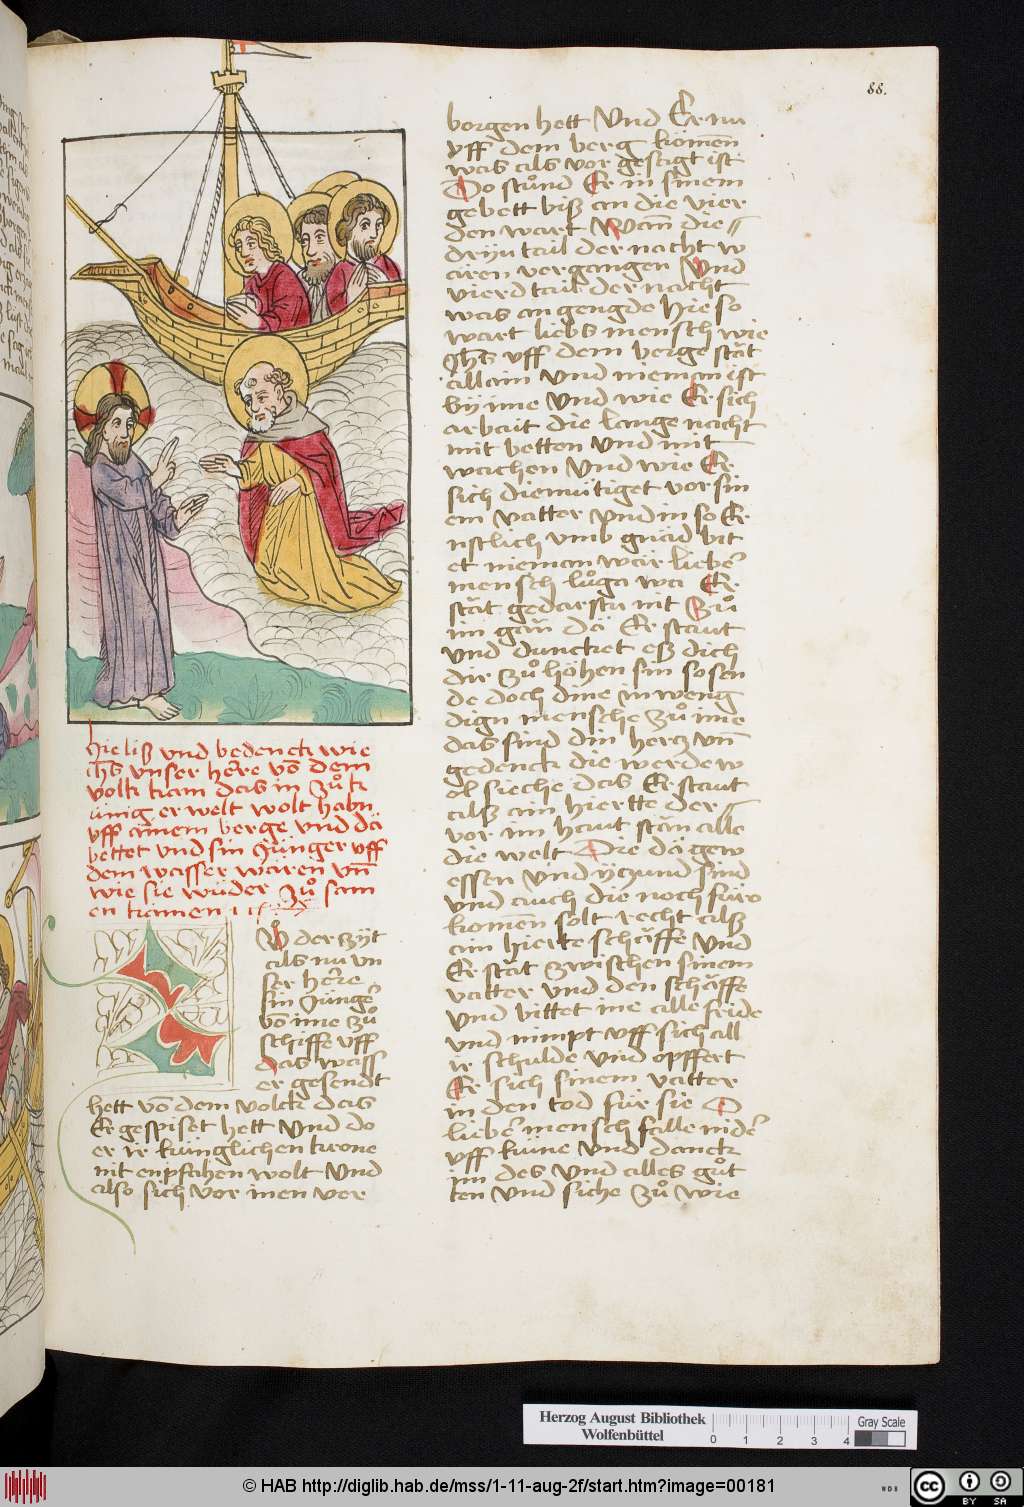 88.
hie liß vnd bedenck wie
ihs vnser here vō dem
volk kam das in zuͦ k
ünig er welt wolt habn
vff ainem berge vnd dā
bettet vnd sin Jünger vff
dem wasser wāren vn̄
wie sie wider zuͦ sam
en kamen
der zÿt
als nu vn
ser here
sin Jünge
vō ime zuͦ
schiffe vff
das wass
er gesendt
hett vō dem volck das
Er gespiset hett Vnd do
er ir künglichen krone
nit enpfahen wolt Vnd
also sich vor inen ver
borgen hett Vnd Er nu
vff dem berg komen̄
was als vor gesagt ist
Do stuͦnd Er in sinem
gebett biß an die vier
den wart Wan̄ die
drÿu tail der nacht w
aren vergangen Vnd
vierd tail der nacht
was an gengde hie so
wart liebs mensch wie
Jhs vff dem berge stāt
allain Vnd nieman ist
bÿ ime Vnd wie Er sich
arbait die lange nacht
mit betten Vnd mit
wachen Vnd wie Er
sich diemütiget vor sin
em vatter vnd in so Er
nstlich vmb gnād bit
et nieman wār lieber
mensch luͦga wa Er
stāt gedarstu nit Zuͦ
im gān dā Er staut
Vnd duncket eß dich
dir zuͦ höhen sin so sen
de doch dine inweng
dign mensche zuͦ ime
das sind din hertz vn̄
gedenck die werde w
ol sieche das Er staut
alß ain hiertte der
vor im haut stān alle
die welt Die dā gew
essen Vnd yczund sind
vnd auch die noch füro
komen̄ solt recht alß
ain hierte schāffe Vnd
Er stāt zwischen sinem
vatter vnd den schāffe
vnd bittet ine alle feide
vnd nimpt vff sich all
ir schulde vnd opffert
Er sich sinem vatter
in den tod für sie O
lieber mensch falle nider
vff küne Vnd danck
im des Vnd alles guͦt
ten Vnd siche zuͦ wie
Herzog August Bibliothek
Wolfenbüttel
0 1 2 3 4
Gray Scale
© HAB http://diglib.hab.de/mss/1-11-aug-2f/start.htm?image=00181
WDB
cc BY SA